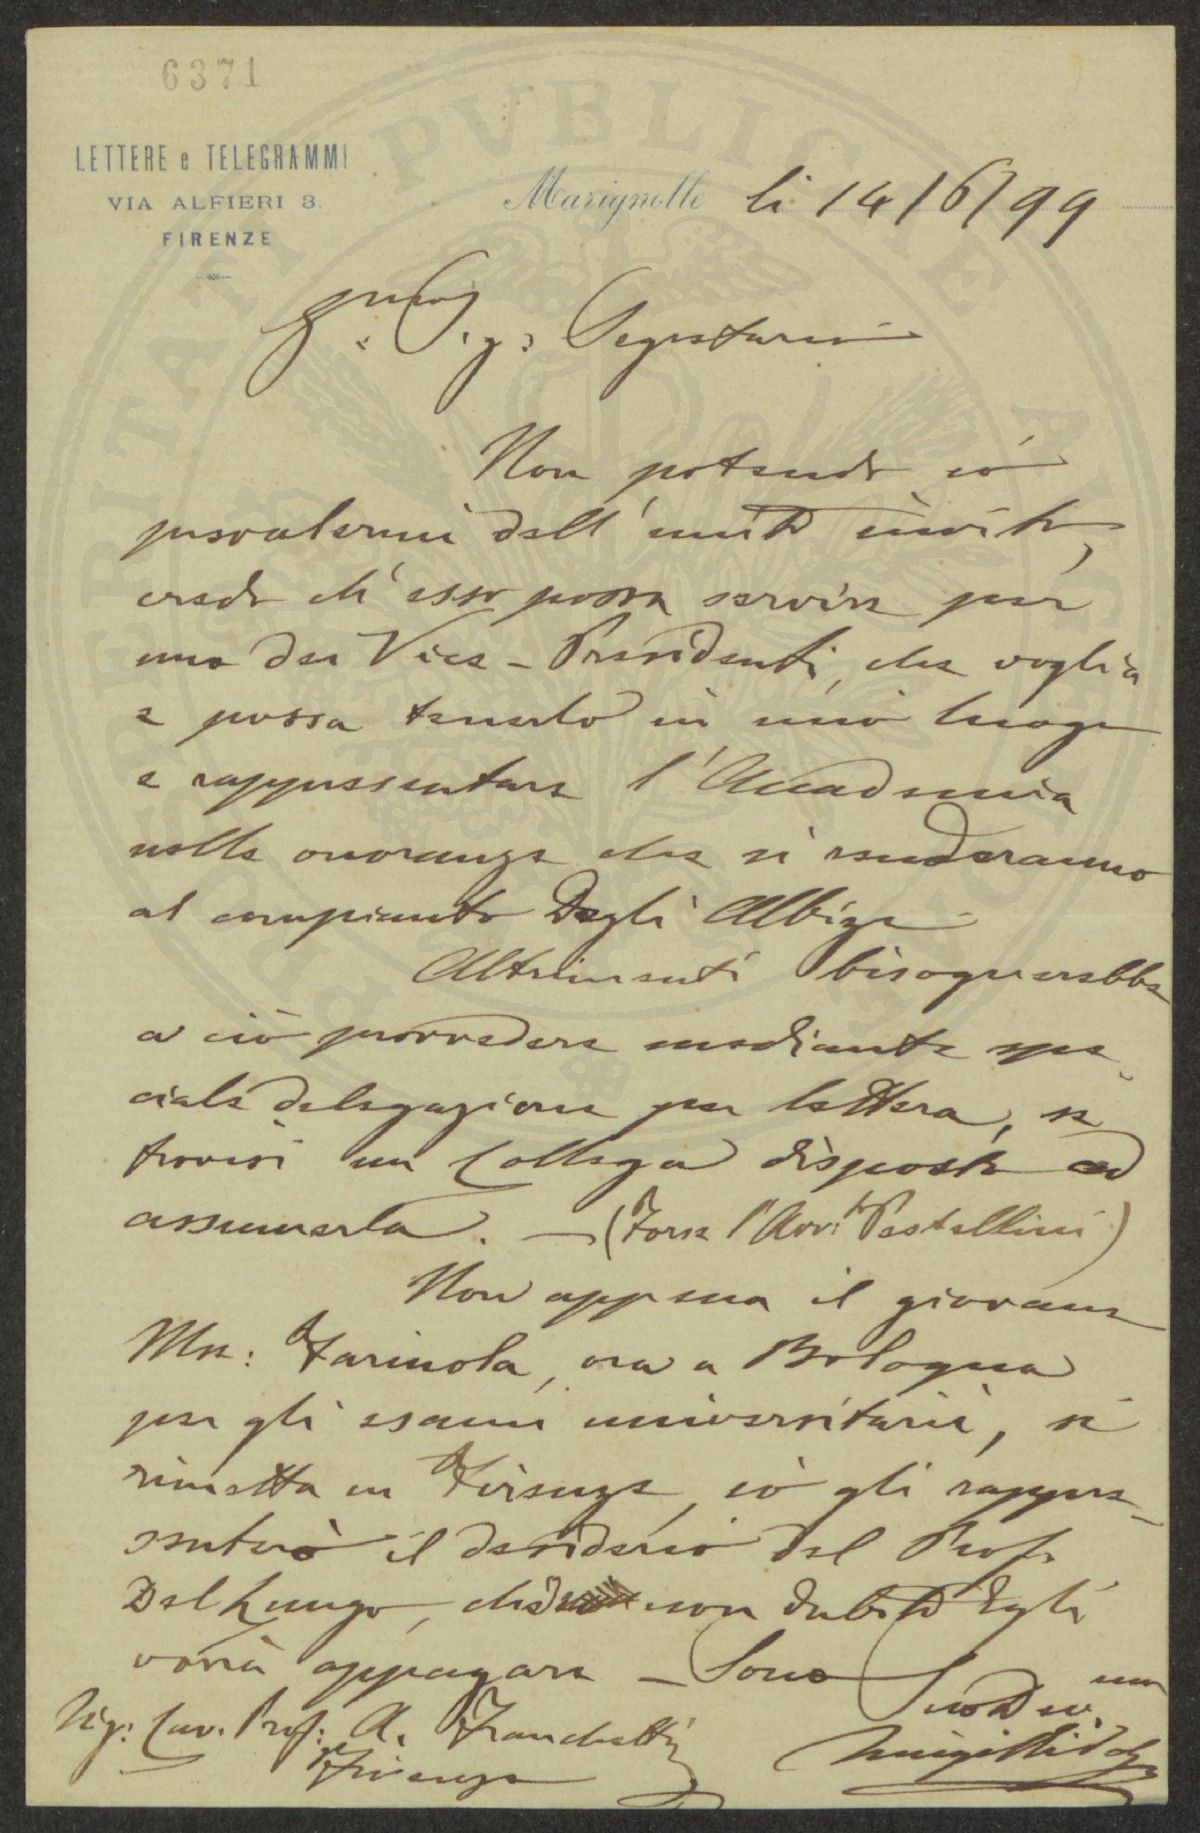 6371
LETTERE e TELEGRAMMI
VIA ALFIERI 3.
FIRENZE
Marignolle li 14/6/99
Sig: Segretario
Non potendo io
prevalermi dell'unito invito,
credo ch'esso possa servire per
uno dei Vice-Presidenti, che voglia
e possa tenerlo in mio luogo
e rappresentare l'Accademia
nelle onoranze che si renderanno
al compianto Degli Albizi
Altrimenti bisognerebbe
a ciò provvedere mediante spe-
ciale delegazione per lettera, se
trovisi un Collega disposto ad
assumerla. — (Forse l'Avv:to Pestellini)
Non appena il giovane
Mse: Farinola, ora a Bologna
per gli esami universitarii, si
rimetta in Firenze, io gli rappre-
senterò il desiderio del Prof.
Del Lungo, che non dubito Egli
vorrà appagare — Sono
Suo Dev.mo
Sig: Cav. Prof: A. Franchetti
Firenze
Luigi Ridolfi